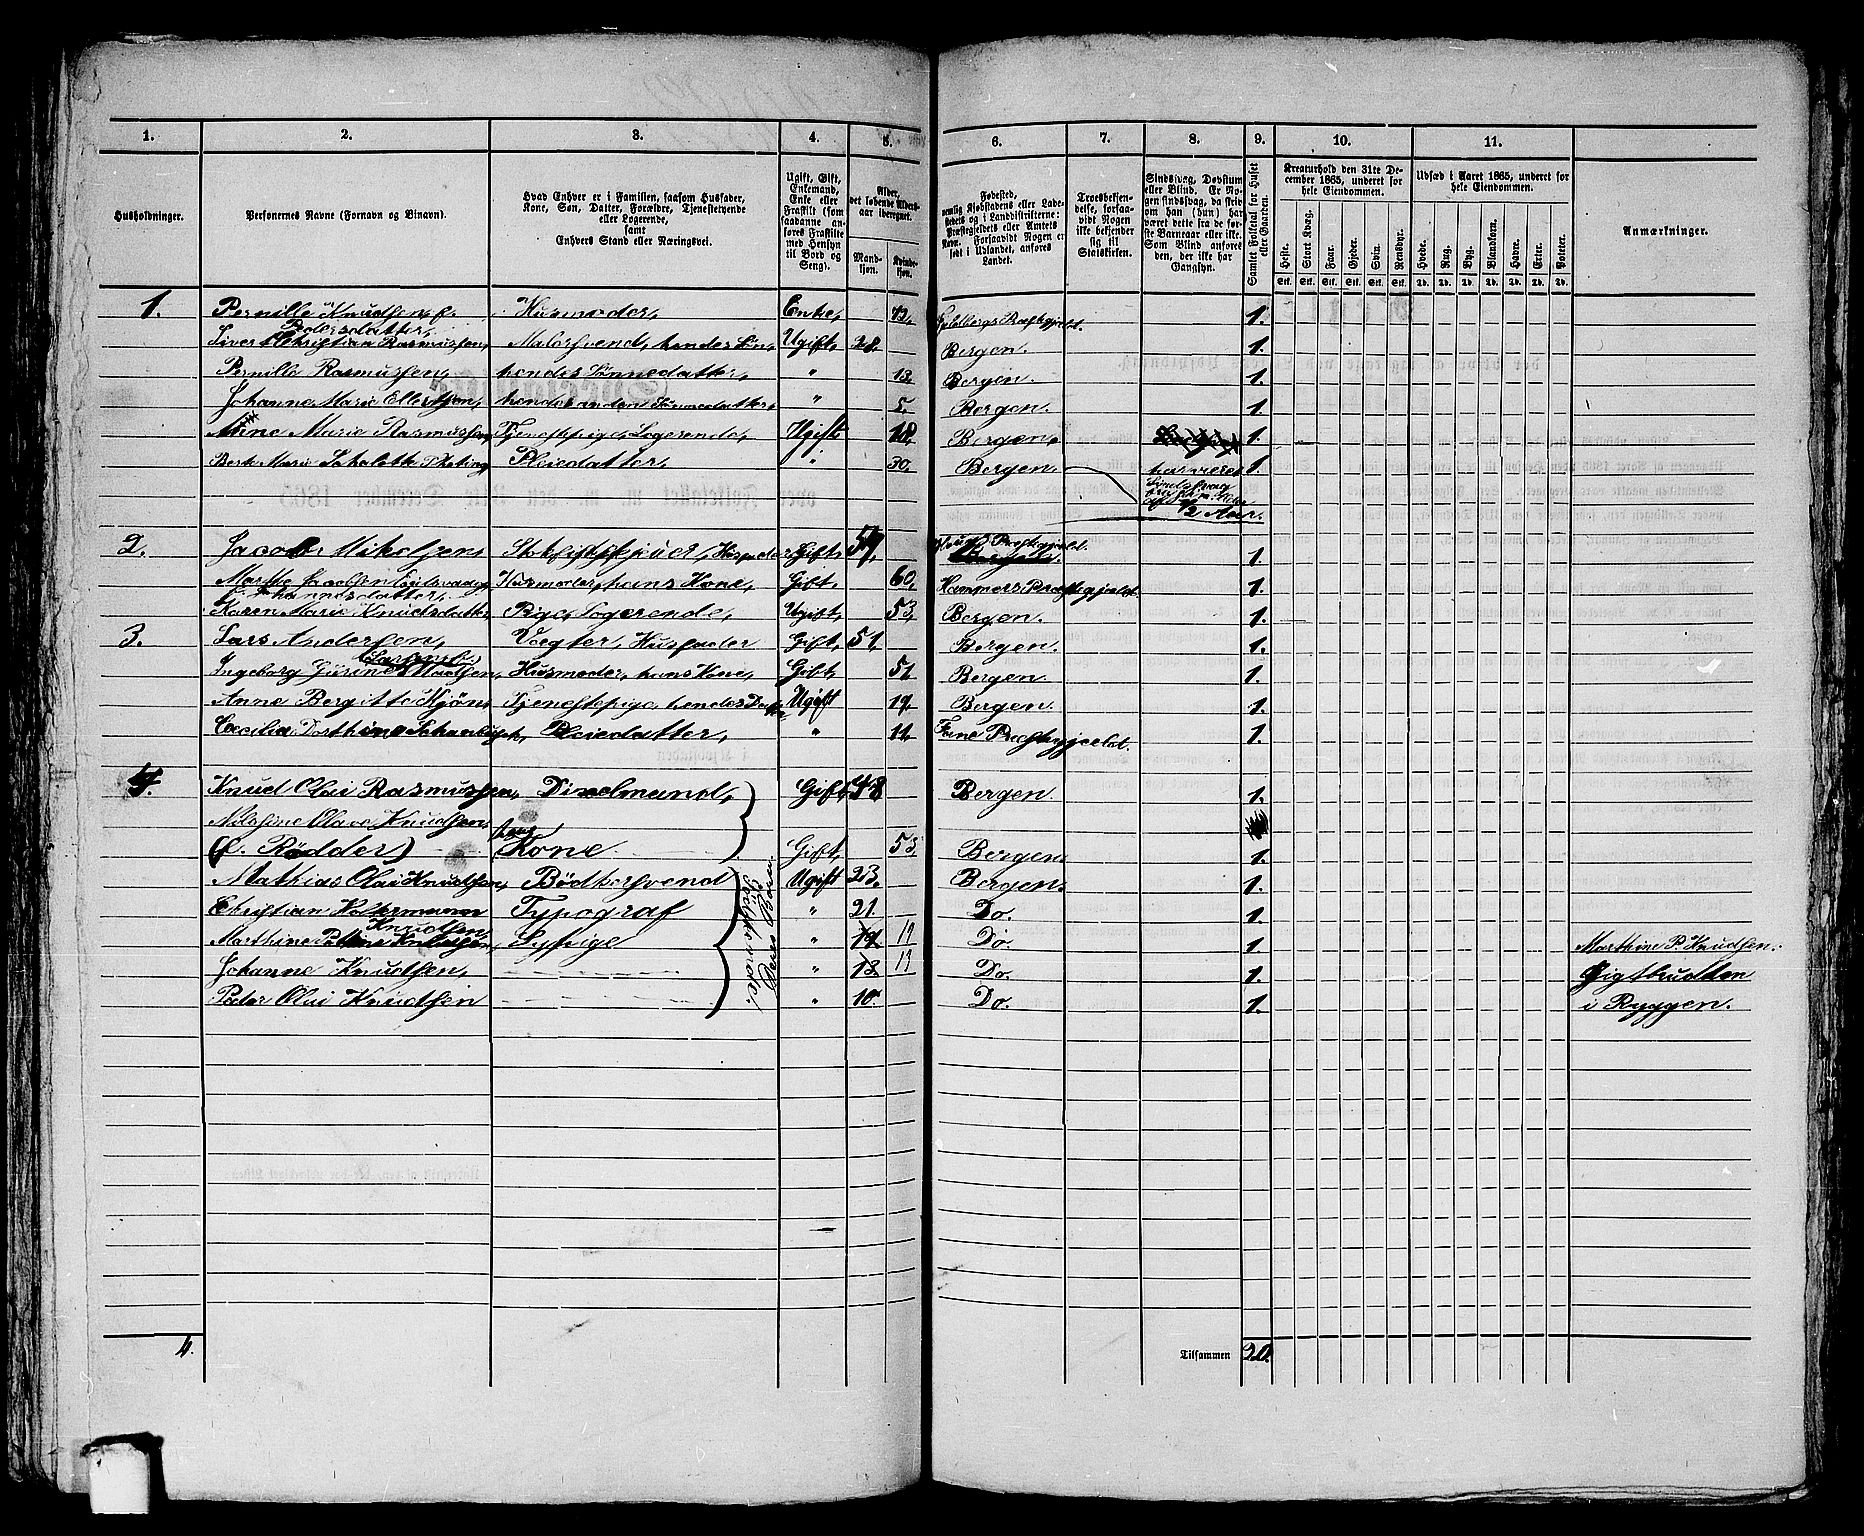 1. 2. 3. 4. 5. 6. 7. 8. 9. 10. 11.
Husholdninger.
Personernes Navne (Fornavn og Binavn).
Hvad Enhver er i Familien, saasom Husfader, Kone, Søn, Datter, Forældre, Tjenestetyende eller Logerende, samt Enhvers Stand eller Næringsvei.
Ugift, Gift, Enkemand, Enke eller Fraskilt (som saadanne anføres Fraskilte med Hensyn til Bord og Seng).
Alder, det løbende Aldersaar iberegnet.
Mandkjøn. Kvindekjøn.
Fødested, nemlig Kjøbstadens eller Ladestedets og i Landdistrikterne: Præstegjeldets eller Amtets Navn. Forsaavidt Nogen er født i Udlandet, anføres Landet.
Troesbekjendelse, forsaavidt Nogen ikke bekjender sig til Statskirken.
Sindssvag, Døvstum eller Blind. Er Nogen sindssvag, da skriv om han (hun) har været dette fra de første Barneaar eller ikke. Som Blind anføres den, der ikke har Gangsyn.
Samlet Folketal for Huset eller Gaarden.
Kreaturhold den 31te December 1865, underet for hele Eiendommen.
Heste. Stort Kvæg. Faar. Gjeder. Svin. Rensdyr.
Udsæd i Aaret 1865, underet for hele Eiendommen.
Hvede. Rug. Byg. Blandkorn. Havre. Erter. Poteter.
Anmærkninger.
1. Pernille Knudsen, f. Husmoder, Enke, 72,
Pedersdatter,
Siver Christian Rasmussen, Malersvend, hendes Søn, Ugift, 28, Bergen. 1.
Pernille Rasmussen, hendes Sønnedatter, " 13, Bergen. 1.
Johanne Marie Ellertsen, hendes anden Sønnedatter, " 5. Bergen. 1.
Anne Marie Rasmussen, Tjenestepige, Logerende, Ugift 18, Bergen, 1.
Plejedatter, " 30, Bergen. 1.
har været
1/2 Aar.
2. Jacob Mikelsen, Husfader, Gift, 57, Præstegjeld. 1.
Husmoder, hans Kone, Gift, 60, Hammers Præstegjeld. 1.
Johannesdatter,
Karen Marie Knudsdatter, Pige, Logerende, Ugift, 53, Bergen. 1.
3. Lars Andersen, Vægter, Husfader Gift, 51, Bergen. 1.
Husmoder, hans Kone, Gift, 51 Bergen. 1.
Anne Bergitte Tjenestepige, hendes Datter Ugift 19. Bergen. 1.
Pleiedatter, " 11. Præstegjeld. 1.
4. Knud Olai Rasmussen, Gift, 48 Bergen. 1.
Nilsine Olave Knudsen,
(f. Rødder) hans Kone Gift, 53, Bergen. 1.
Mathias Olai Knudsen, Bødkersvend Ugift 23. Bergen. 1.
Christian Holtermann Typograf " 21. Do. 1.
Knudsen,
Marthine Sypige " 19 Do. 1. Marthine P. Knudsen.
Johanne Knudsen, " 13 Do. 1. Gigtbrudden
Peder Olai Knudsen " 10. Do. 1. i Ryggen.
Deres Børn
4. Tilsammen 20.